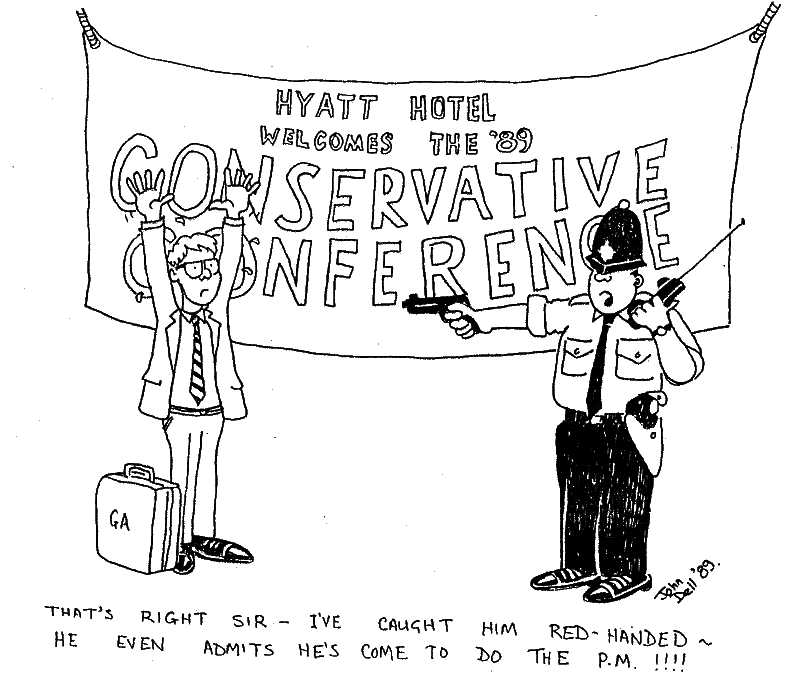 HYATT HOTEL
WELCOMES THE '89
CONSERVATIVE
CONFERENCE
GA
John
Dell '89.
THAT'S RIGHT SIR - I'VE CAUGHT HIM RED-HANDED ~
HE EVEN ADMITS HE'S COME TO DO THE P.M. !!!!